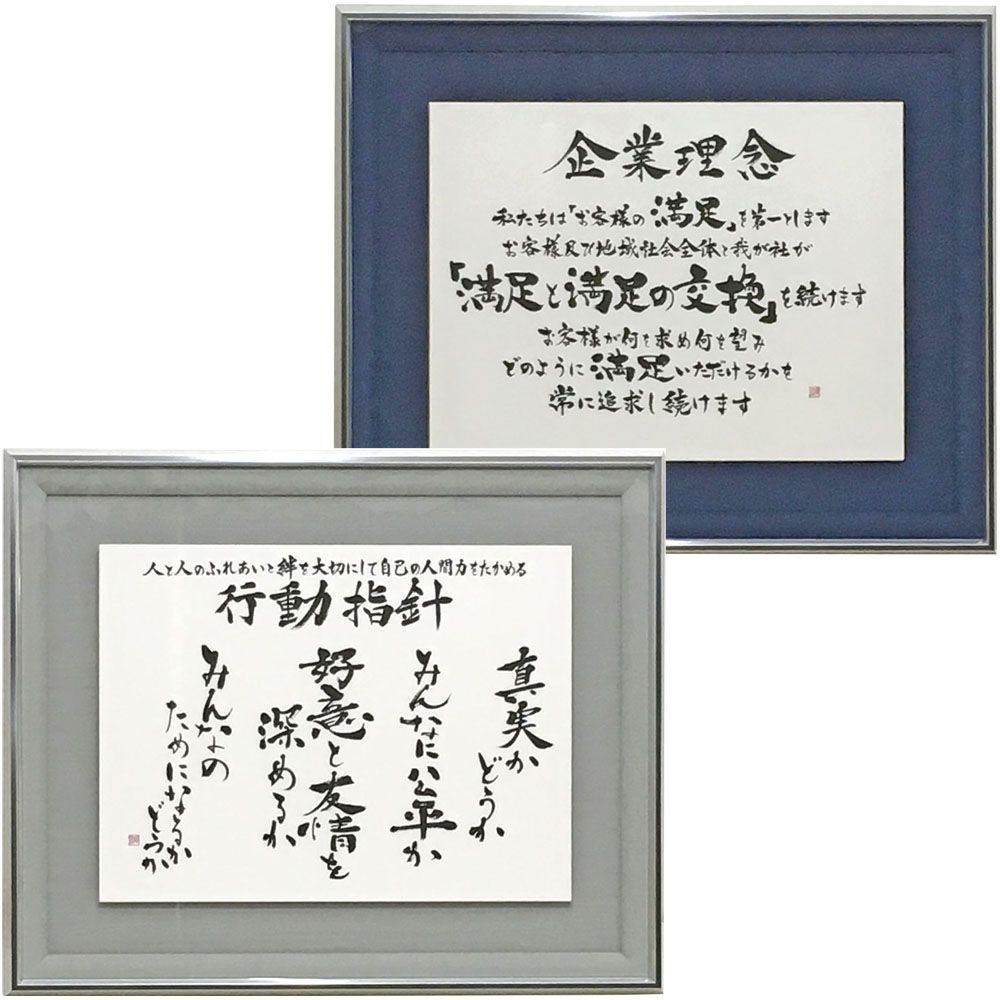 企業理念
私たちは「お客様の満足」を第一とします
お客様及び地域社会全体と我が社が
「満足と満足の交換」を続けます
お客様が何を求め何を望み
どのように満足いただけるかを
常に追求し続けます
人と人のふれあいと絆を大切にして自己の人間力をたかめる
行動指針
真実か
どうか
みんなに公平か
好意と友情を
深めるか
みんなの
ためになるか
どうか